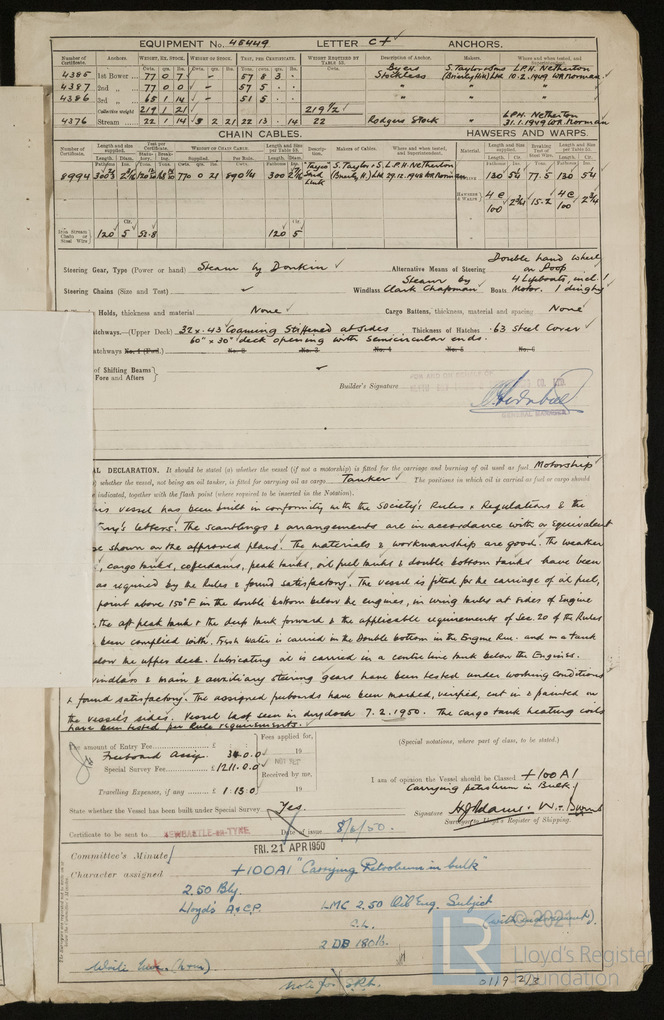 EQUIPMENT No. 45449 LETTER C† ANCHORS.
Number of Certificate. Anchors. WEIGHT, EX. STOCK. WEIGHT OF STOCK. TEST, PER CERTIFICATE. WEIGHT REQUIRED BY TABLE 53. Description of Anchor. Makers. Where and when tested, and Superintendent.
4385 1st Bower 77 0 7 57 8 3 Byers Stockless S. Taylor & Sons (Brierley Hill) Ltd L.P.H. Netherton 10.2.1949 W.A. Norman
4387 2nd " 77 0 0 57 5 " " "
4386 3rd " 65 1 14 51 5 " " "
Collective weight 219 1 21 219 1/2
4376 Stream 22 1 14 5 2 21 22 13 14 22 Rodgers Stock L.P.H. Netherton 31.1.1949 W.A. Norman
CHAIN CABLES. HAWSERS AND WARPS.
Number of Certificate. Length and size supplied. Test per Certificate. WEIGHT OF CHAIN CABLE. Length and size per Table 53. Description. Makers of Cables. Where and when tested, and Superintendent. Material. Length and size supplied. Breaking Test of Steel Wire. Length and size per Table 53.
8994 300 770 0 21 890 1/4 300 Tayco Stud Link S. Taylor & S. (Brierly H.) Ltd L.P.H. Netherton 29.12.1948 W.A. Norman 130 77.5 130
HAWSERS & WARPS 4 @ 100 2 3/4 15.2 4 @ 100 2 3/4
Iron Stream Chain or Steel Wire 120 5 52.8 120 5
Double hand wheel on Poop
Steering Gear, Type (Power or hand) Steam by Donkin Alternative Means of Steering
Steering Chains (Size and Test) Windlass Steam by Clark Chapman Boats 4 Lifeboats, incl. 1 Motor. 1 dinghy
Holds, thickness and material None Cargo Battens, thickness, material and spacing None
atchways.—(Upper Deck) 32 x .43 Coaming Stiffened at sides. Thickness of Hatches .63 Steel Cover
60" x 30" deck opening with semicircular ends.
atchways No. 1 (Fwd.) No. 2 No. 3 No. 4 No. 5 No. 6
of Shifting Beams
Fore and Afters
FOR AND ON BEHALF OF
CO. LTD.
Builder's Signature
GENERAL MANAGER
AL DECLARATION. It should be stated (a) whether the vessel (if not a motorship) is fitted for the carriage and burning of oil used as fuel Motorship
whether the vessel, not being an oil tanker, is fitted for carrying oil as cargo Tanker The positions in which oil is carried as fuel or cargo should
indicated, together with the flash point (where required to be inserted in the Notation).
his vessel has been built in conformity with the Society's Rules & Regulations & the
ary's letters. The scantlings & arrangements are in accordance with or equivalent
shown on the approved plans. The materials & workmanship are good. The weather
, cargo tanks, coferdams, peak tanks, oil fuel tanks & double bottom tanks have been
as required by the Rules & found satisfactory. The vessel is fitted for the carriage of oil fuel,
point above 150°F in the double bottom below the engines, in wing tanks at sides of Engine
the aft peak tank & the deep tank forward & the applicable requirements of Sec. 20 of the Rules
been complied with. Fresh water is carried in the Double bottom in the Engine Rm. and in a tank
elow the upper deck. Lubricating oil is carried in a centre line tank below the Engines.
windlass & main & auxiliary steering gears have been tested under working conditions
& found satisfactory. The assigned freeboards have been marked, verified, cut in & painted on
the vessel's sides. Vessel last seen in drydock 7.2.1950. The cargo tank heating coils
have been tested per Rule requirements.
The amount of Entry Fee £ : : Fees applied for, (Special notations, where part of class, to be stated.)
Freeboard Assig. 34.0.0 19
Special Survey Fee £ 1211.0.0 NOT YET Received by me, I am of opinion the Vessel should be Classed +100A1
Travelling Expenses, if any £ 1.13.0 19 Carrying petroleum in Bulk
State whether the Vessel has been built under Special Survey Yes. Signature
Surveyor to Lloyd's Register of Shipping.
Certificate to be sent to NEWCASTLE-on-TYNE Date of issue 8/6/50.
Committee's Minute FRI. 21 APR 1950
Character assigned +100A1 "Carrying Petroleum in bulk"
2.50 Bly.
Lloyd's A & C.P. LMC 2.50 Oil Eng. Subject
C.L. (with endorsement).
2 DB 180 lb.
© 2021
Lloyd's Register
Foundation
LR
0119 2/3